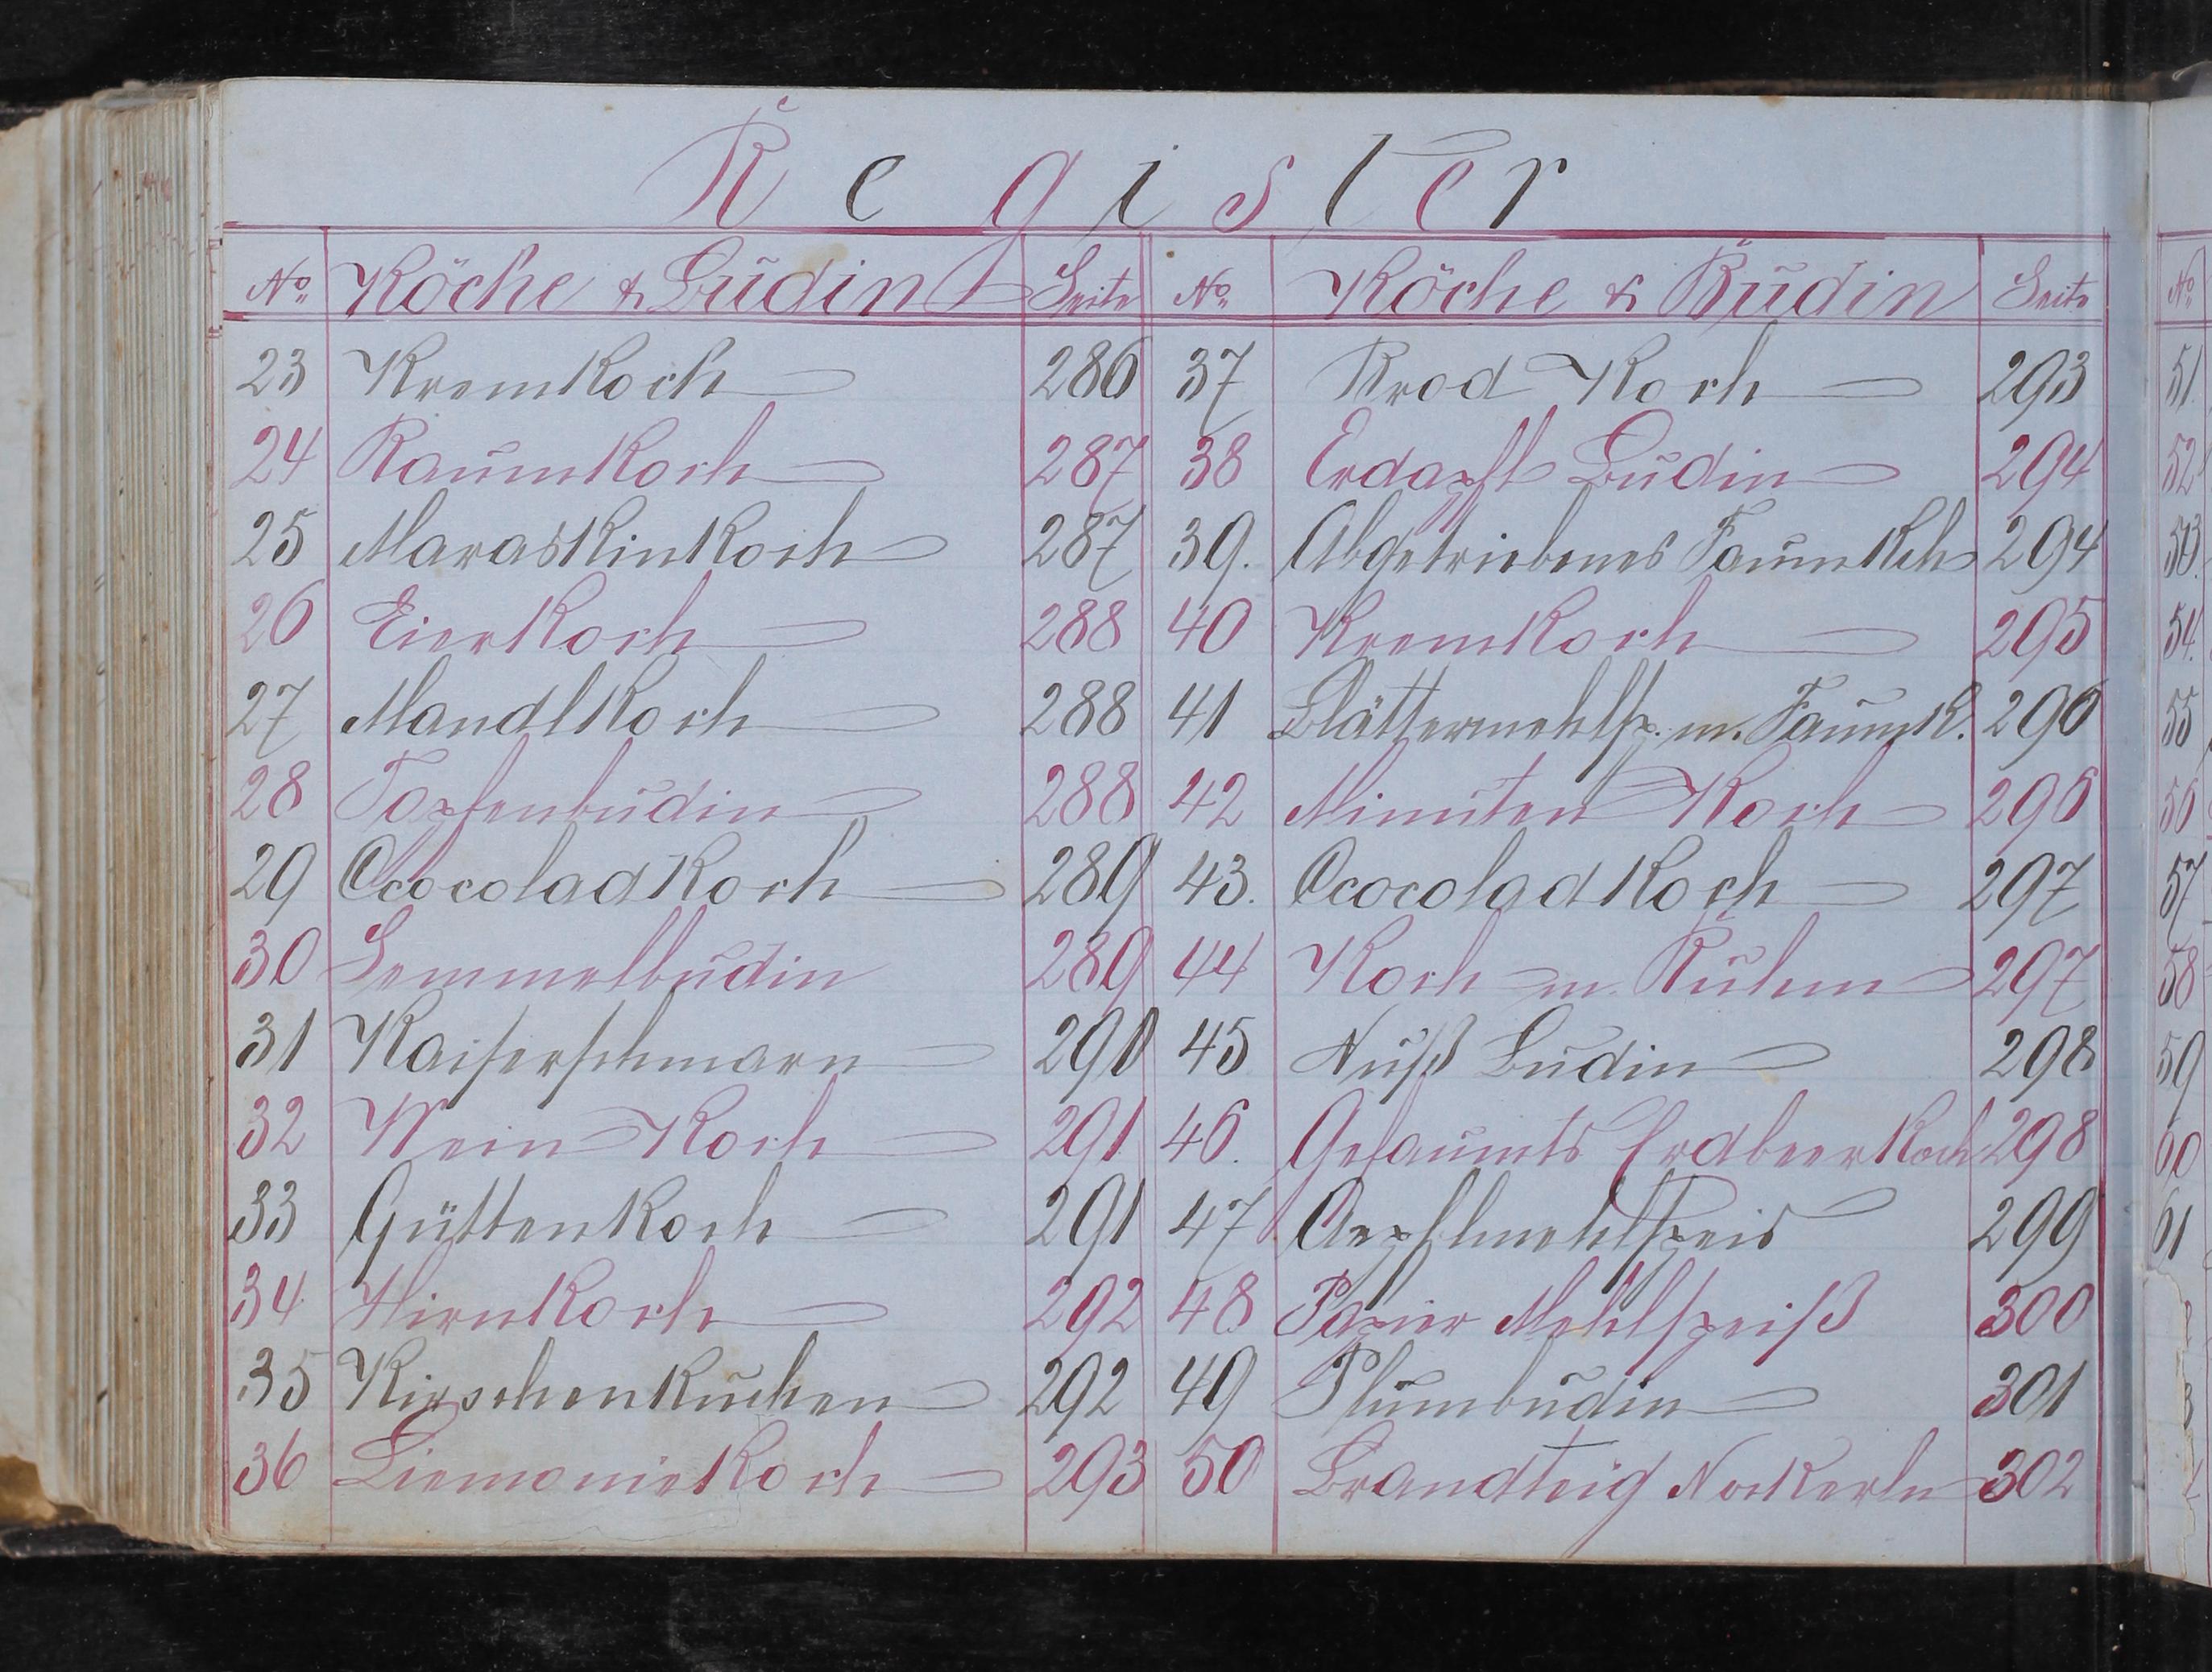 Register
No. Köche & Budin Seite No. Köche & Budin Seite
23 Kremkoch 286
24 Raumkoch 287
25 Maraskinkoch 287
26 Eierkoch 288
27 Mandlkoch 288
28 Topfenbudin 288
29 Ococoladkoch 289
30 Semmelbudin 289
31 Kaiserschmarn 290
32 Wein Koch 291
33 Güttenkoch 291
34 Hirnkoch 292
35 Kirschenkuchen 292
36 Liemoniekoch 293
37 Brod Koch 293
38 Erdapfl Budin 294
39. Abgetriebenes Faumkch 294
40 Kremkoch 295
41 Blättermehlsp. m. Faumk. 296
42 Minuten Koch 296
43. Ococoladkoch 297
44 Koch m. Ruhm 297
45 Nuß Budin 298
46. Gefaumts Erdbeerkoch 298
47 Aepflmehlspeis 299
48 Papier Mehlspeiß 300
49 Plumbudin 301
50 Brandteig Nockerln 302
No.
51
52
53.
54.
55
56
57
58
59
60
61